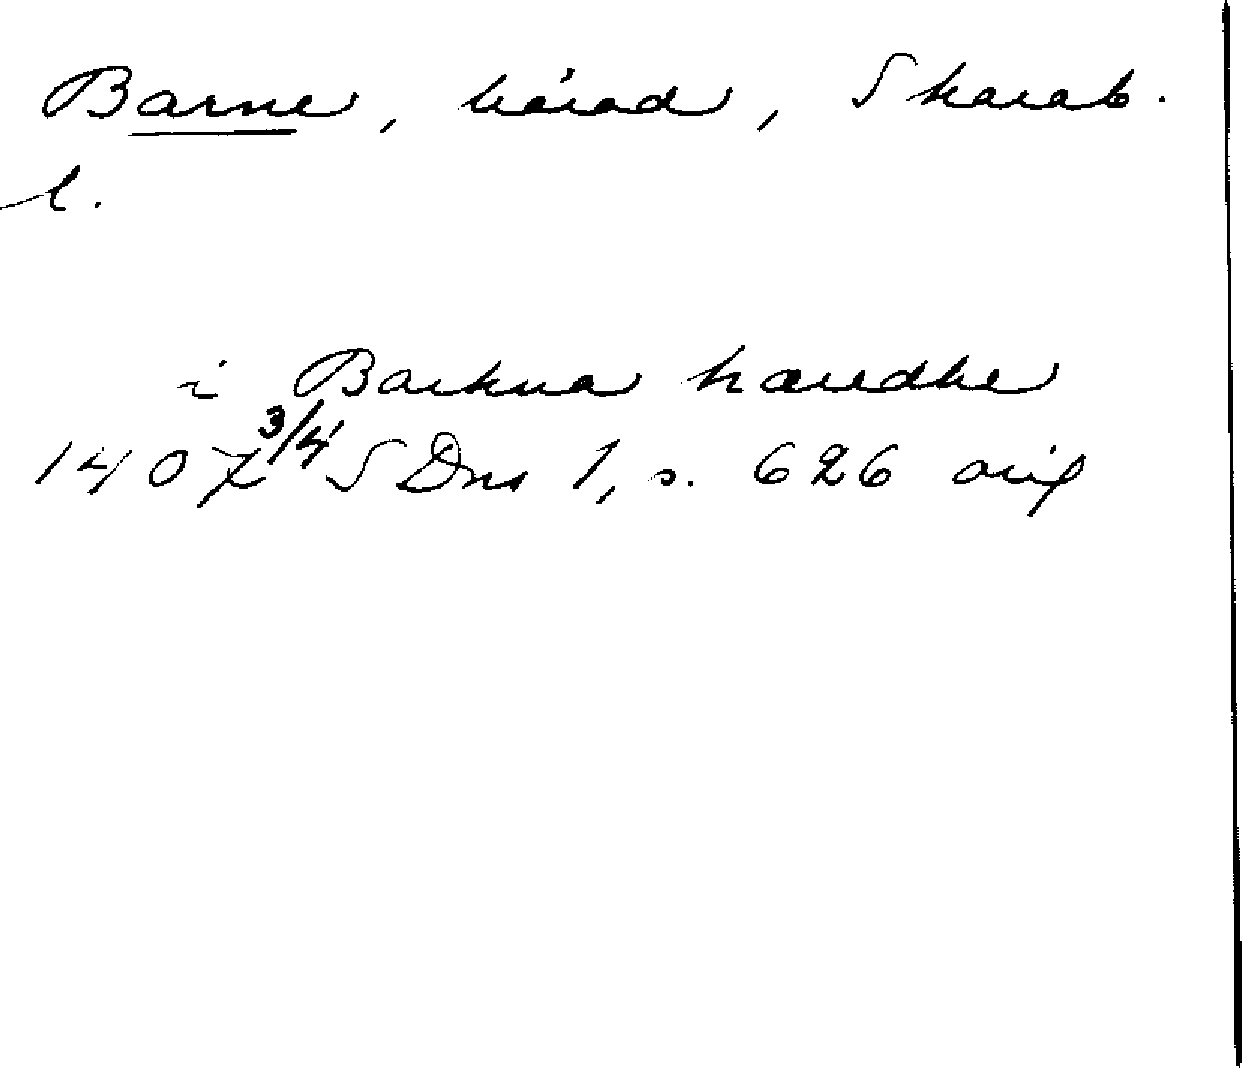 Barne, härad, Skarab.
l.
i Barkna hæredhe
1407 3/4 SDns 1, s. 626 orig